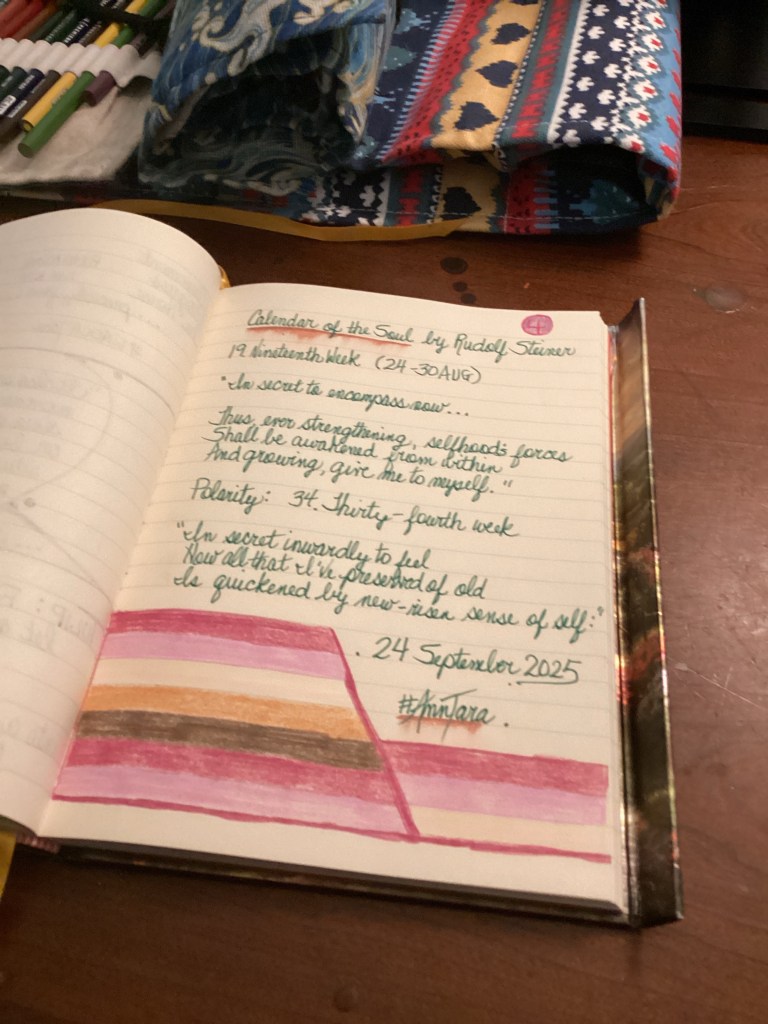 Calendar of the Soul by Rudolf Steiner
19. Nineteenth Week (24-30 AUG)
"In secret to encompass now...
Thus, ever strengthening, selfhood's forces
Shall be awakened from within
And growing, give me to myself."
Polarity: 34. Thirty-fourth week
"In secret inwardly to feel
How all that I've preserved of old
Is quickened by new-risen sense of self:"
. 24 September 2025
#AnnTara.